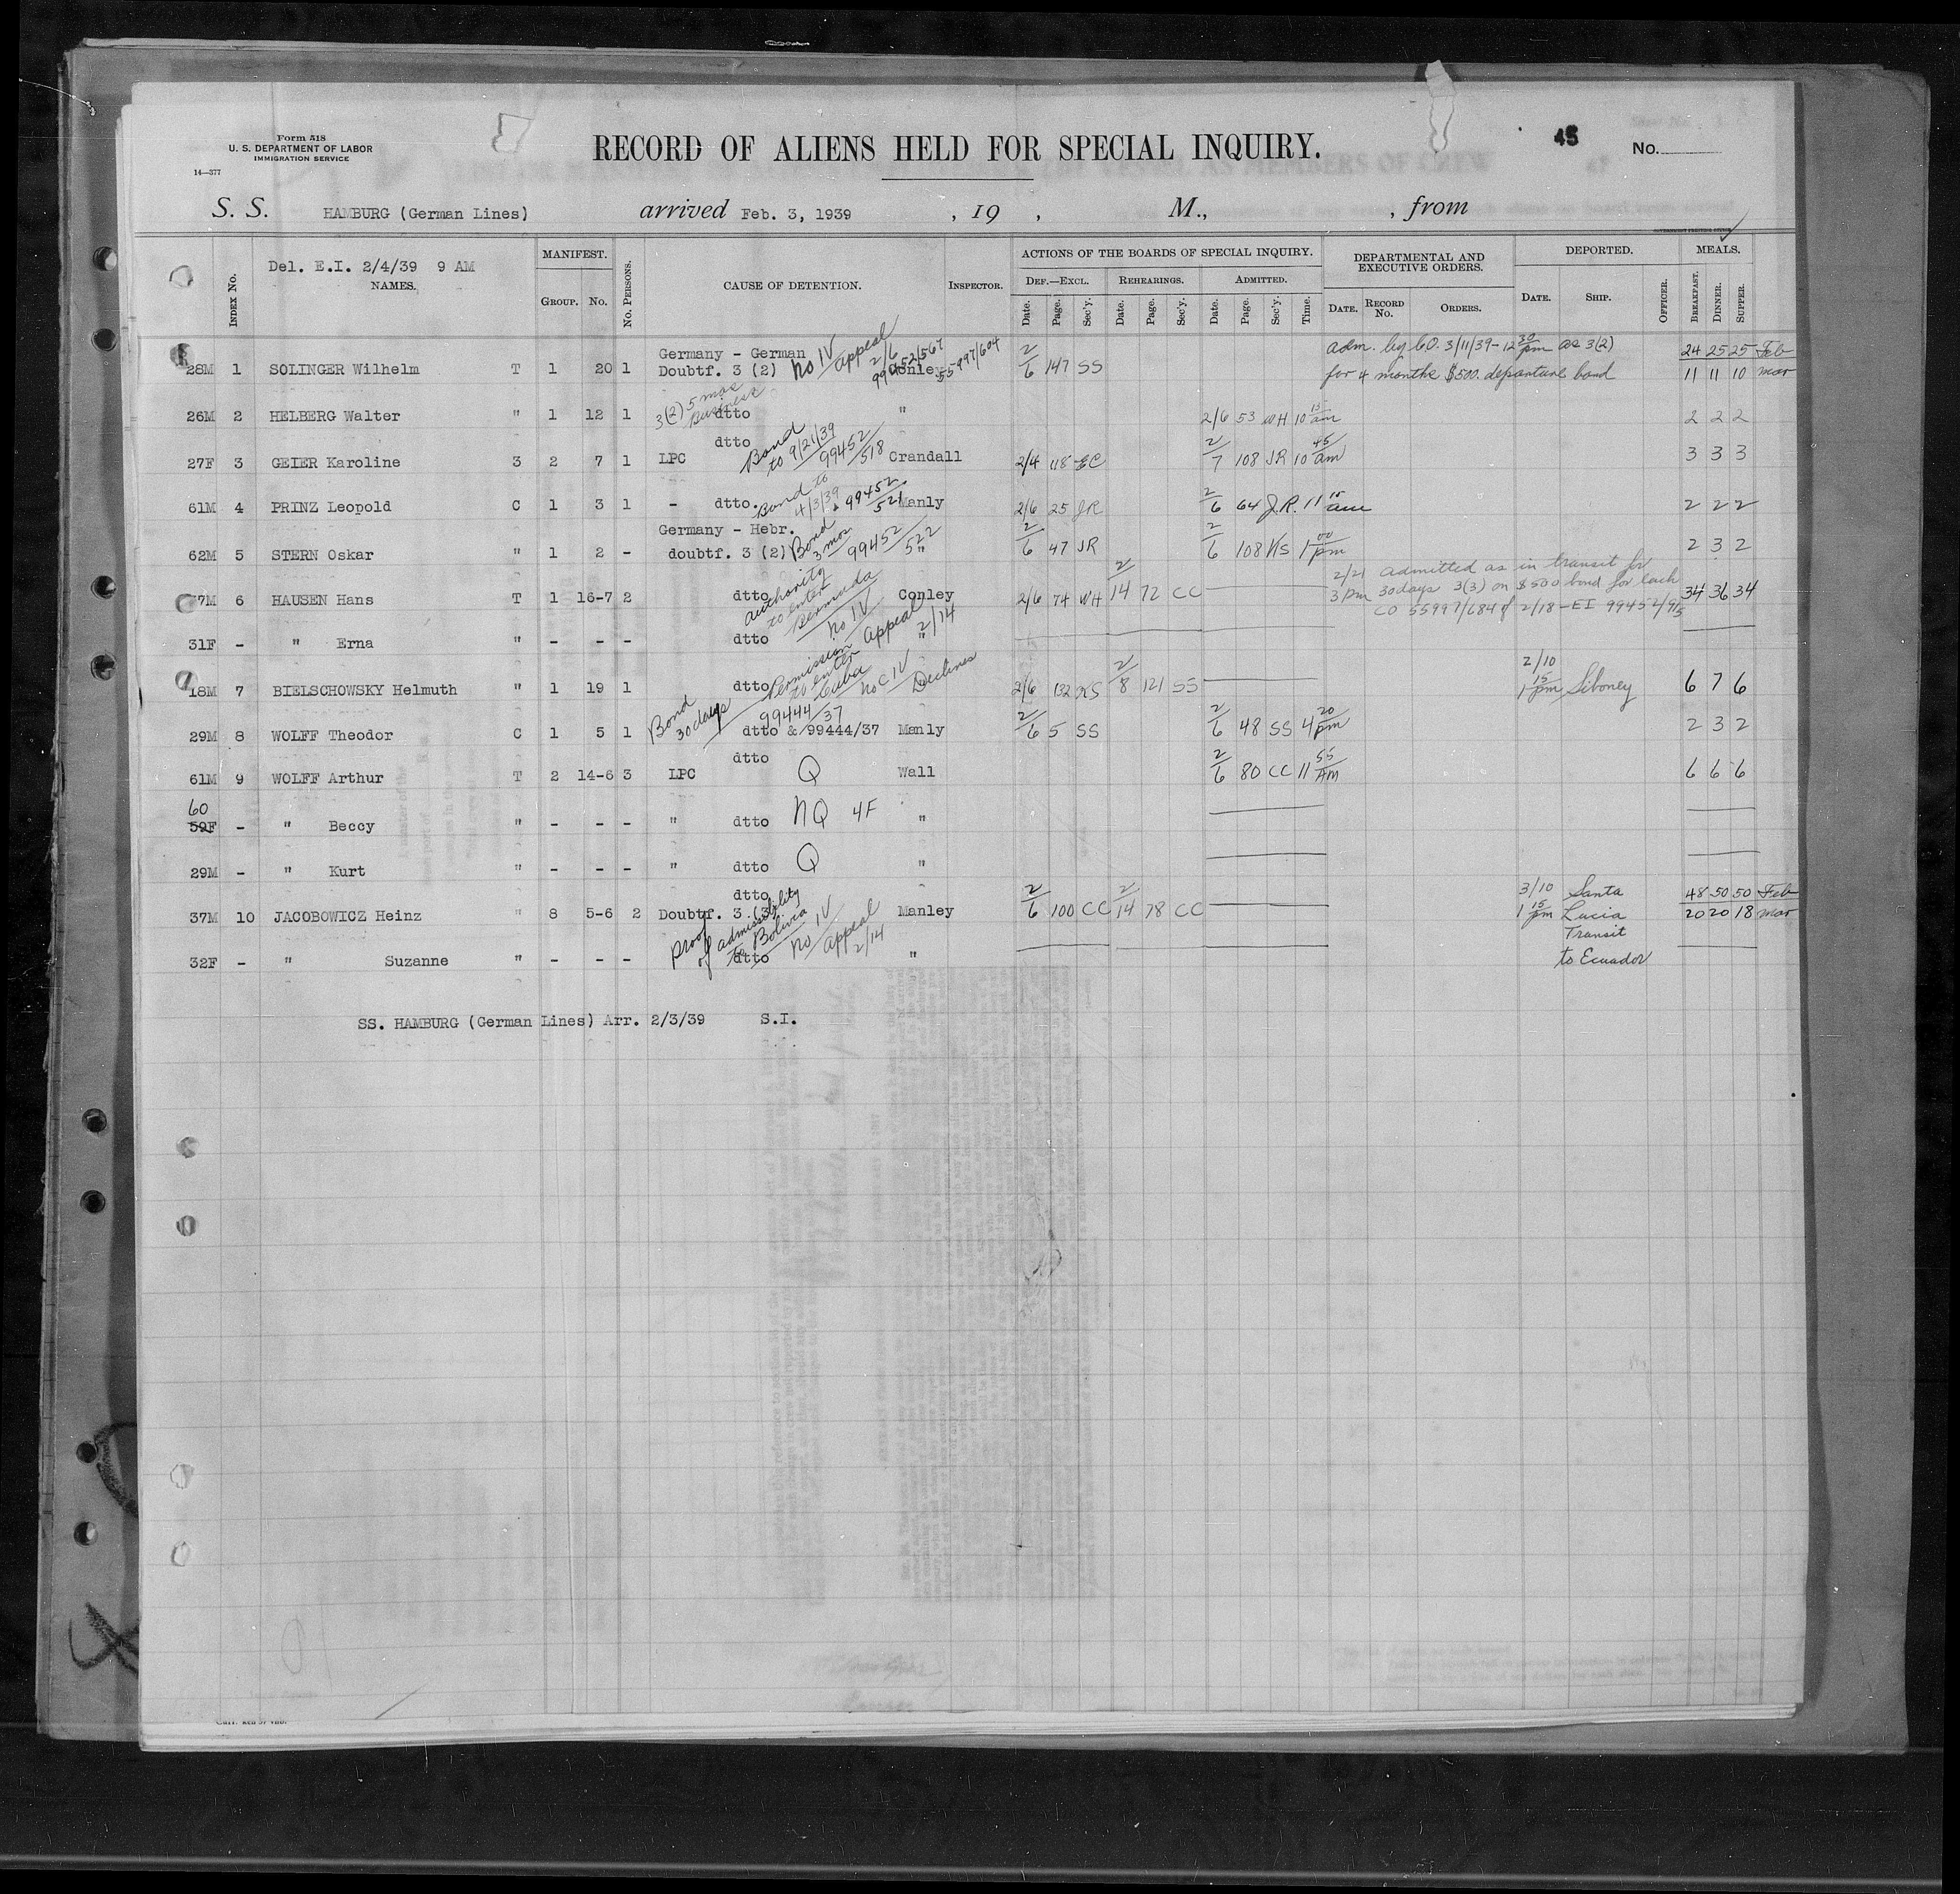 Form 518
U. S. DEPARTMENT OF LABOR
IMMIGRATION SERVICE
14—377
RECORD OF ALIENS HELD FOR SPECIAL INQUIRY.
45
No.
S. S. HAMBURG (German Lines) arrived Feb. 3, 1939 , 19 , M., , from
INDEX No.
Del. E.I. 2/4/39 9 AM
NAMES.
MANIFEST.
GROUP. No.
No. PERSONS.
CAUSE OF DETENTION.
INSPECTOR.
ACTIONS OF THE BOARDS OF SPECIAL INQUIRY.
DEF.—EXCL. REHEARINGS. ADMITTED.
Date. Page. Sec'y. Date. Page. Sec'y. Date. Page. Sec'y. Time.
DEPARTMENTAL AND EXECUTIVE ORDERS.
DATE. RECORD No. ORDERS.
DEPORTED.
DATE. SHIP. OFFICER.
MEALS.
BREAKFAST. DINNER. SUPPER.
Germany - German
28M 1 SOLINGER Wilhelm T 1 20 1 Doubtf. 3 (2) no IV appeal 2/6 99452/567 Conley 55997/604 2/6 147 SS adm. by C.O. 3/11/39 - 12 30 pm as 3(2) 24 25 25 Feb
for 4 months $500. departure bond 11 11 10 mar
3(2) 5 mos Business
26M 2 HELBERG Walter " 1 12 1 dtto " 2/6 53 WH 10 15 am 2 2 2
dtto
27F 3 GEIER Karoline 3 2 7 1 LPC Bond to 9/21/39 99452/518 Crandall 2/4 118 EC 2/7 108 JR 10 45 am 3 3 3
61M 4 PRINZ Leopold C 1 3 1 - dtto. Bond to 4/3/39 99452/521 Manly 2/6 25 JR 2/6 64 J.R. 11 15 am 2 2 2
Germany - Hebr.
62M 5 STERN Oskar " 1 2 - doubtf. 3 (2) Bond 3 mos 99452/522 " 2/6 47 JR 2/6 108 KS 1 00 pm 2 3 2
7M 6 HAUSEN Hans T 1 16-7 2 dtto authority to enter Bermuda no IV appeal 2/14 Conley 2/6 74 WH 2/14 72 CC 2/21 3 pm admitted as in transit for 30 days 3(3) on $500 bond for each CO 55997/684 of 2/18 - EI 99452/915 34 36 34
31F - " Erna " - - - dtto "
18M 7 BIELSCHOWSKY Helmuth " 1 19 1 dtto Permission to enter Cuba no C IV Declines 2/6 132 KS 2/8 121 SS 2/10 1 15 pm Siboney 6 7 6
Bond 30 days 99444/37
29M 8 WOLFF Theodor C 1 5 1 dtto & 99444/37 Manly 2/6 5 SS 2/6 48 SS 4 20 pm 2 3 2
dtto
61M 9 WOLFF Arthur T 2 14-6 3 LPC Q Wall 2/6 80 CC 11 55 AM 6 6 6
60
59F - " Beccy " - - - " dtto NQ 4F "
29M - " Kurt " - - - " dtto Q "
dtto
37M 10 JACOBOWICZ Heinz " 8 5-6 2 Doubtf. 3 (3) Proof of admissibility to Bolivia no IV appeal 2/14 Manley 2/6 100 CC 2/14 78 CC 3/10 1 15 pm Santa Lucia 48 50 50 Feb
20 20 18 mar
Transit
32F - " Suzanne " - - - dtto " to Ecuador
SS. HAMBURG (German Lines) Arr. 2/3/39 S.I.